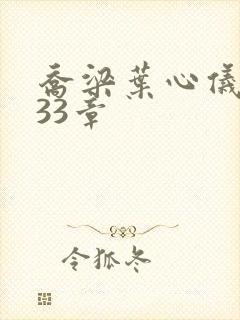 乔梁葉心儀
33章
令狐冬